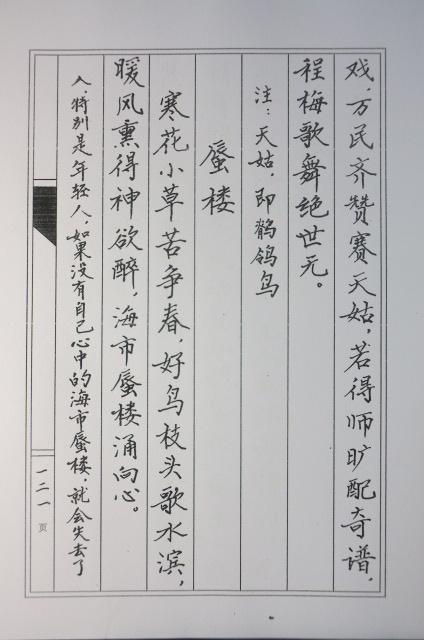 戏，万民齐赞赛天姑，若得师旷配奇谱，
程梅歌舞绝世无。
注：天姑，即鹡鸰鸟
蜃楼
寒花小草苦争春，好鸟枝头歌水滨，
暖风熏得神欲醉，海市蜃楼涌向心。
人，特别是年轻人，如果没有自己心中的海市蜃楼，就会失去了
一二一页